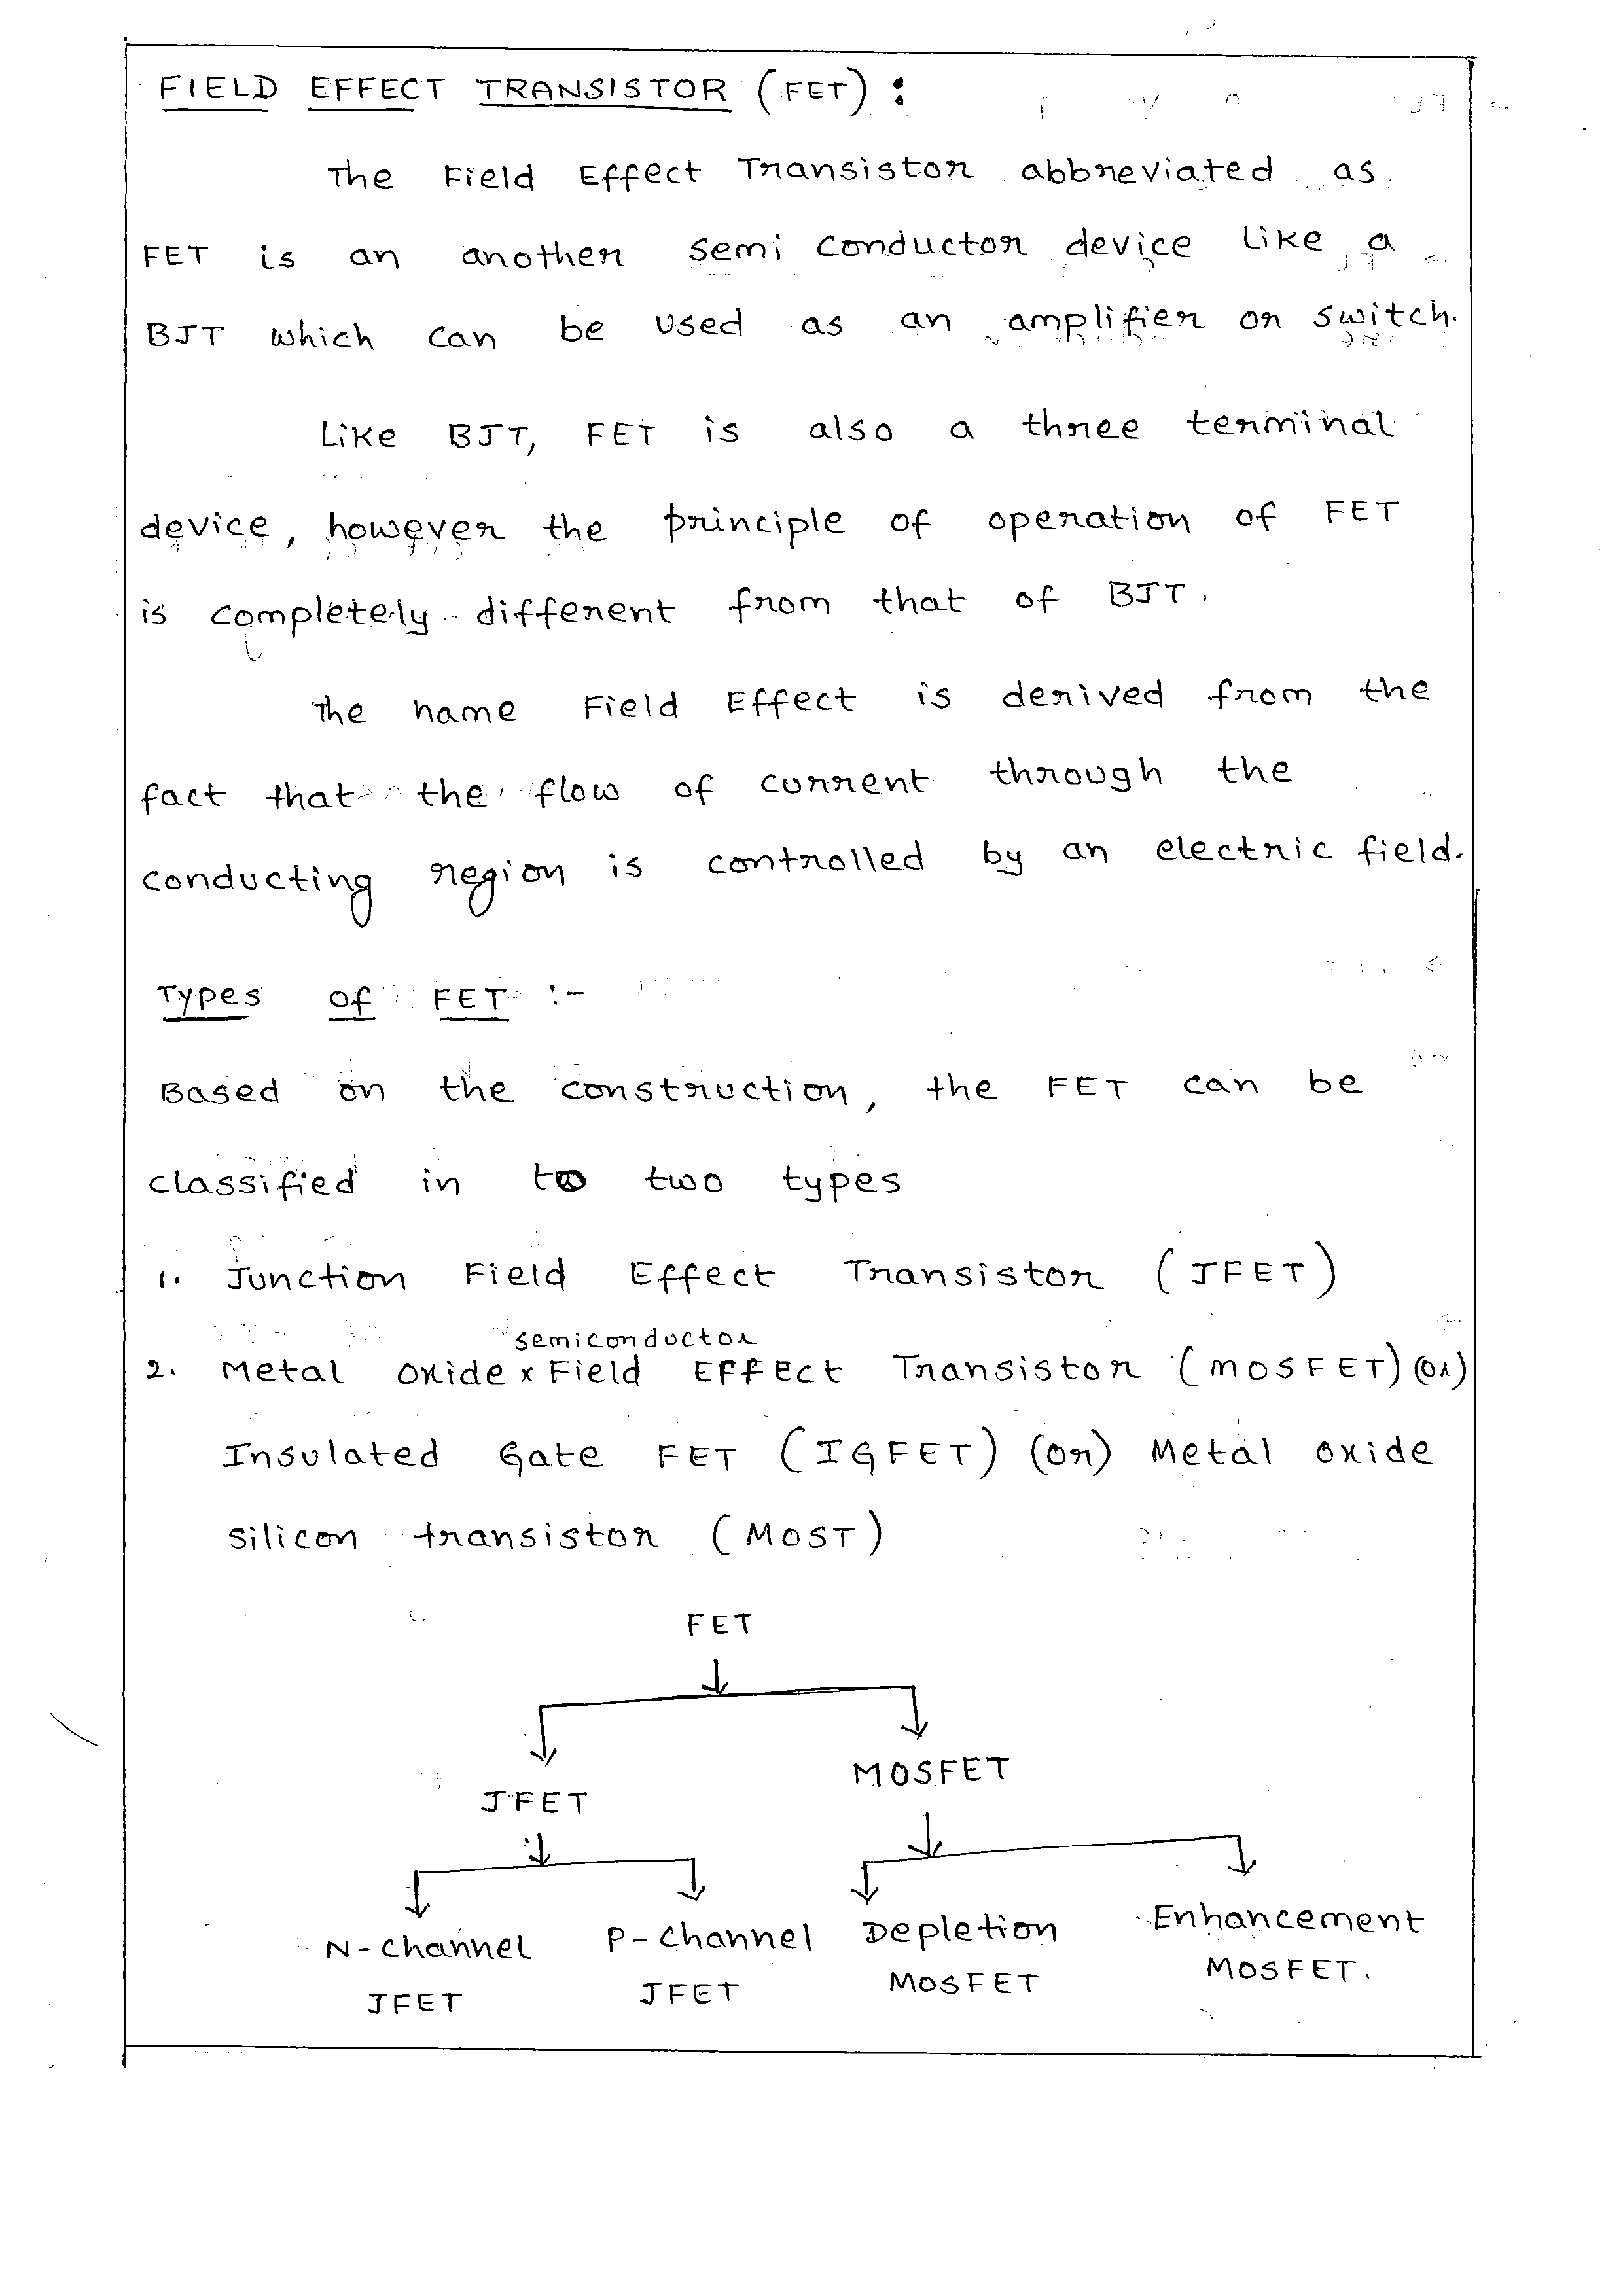 FIELD EFFECT TRANSISTOR (FET) :
The Field Effect Transistor abbreviated as
FET is an another semi conductor device like a
BJT which can be used as an amplifier or switch.
Like BJT, FET is also a three terminal
device, however the principle of operation of FET
is completely different from that of BJT.
The name Field Effect is derived from the
fact that the flow of current through the
conducting region is controlled by an electric field.
Types of FET :-
Based on the construction, the FET can be
classified in to two types
1. Junction Field Effect Transistor (JFET)
semiconductor
2. Metal oxide x Field Effect Transistor (MOSFET) (or)
Insulated Gate FET (IGFET) (or) Metal oxide
silicon transistor (MOST)
FET
JFET MOSFET
N-channel P-channel Depletion Enhancement
JFET JFET MOSFET MOSFET.